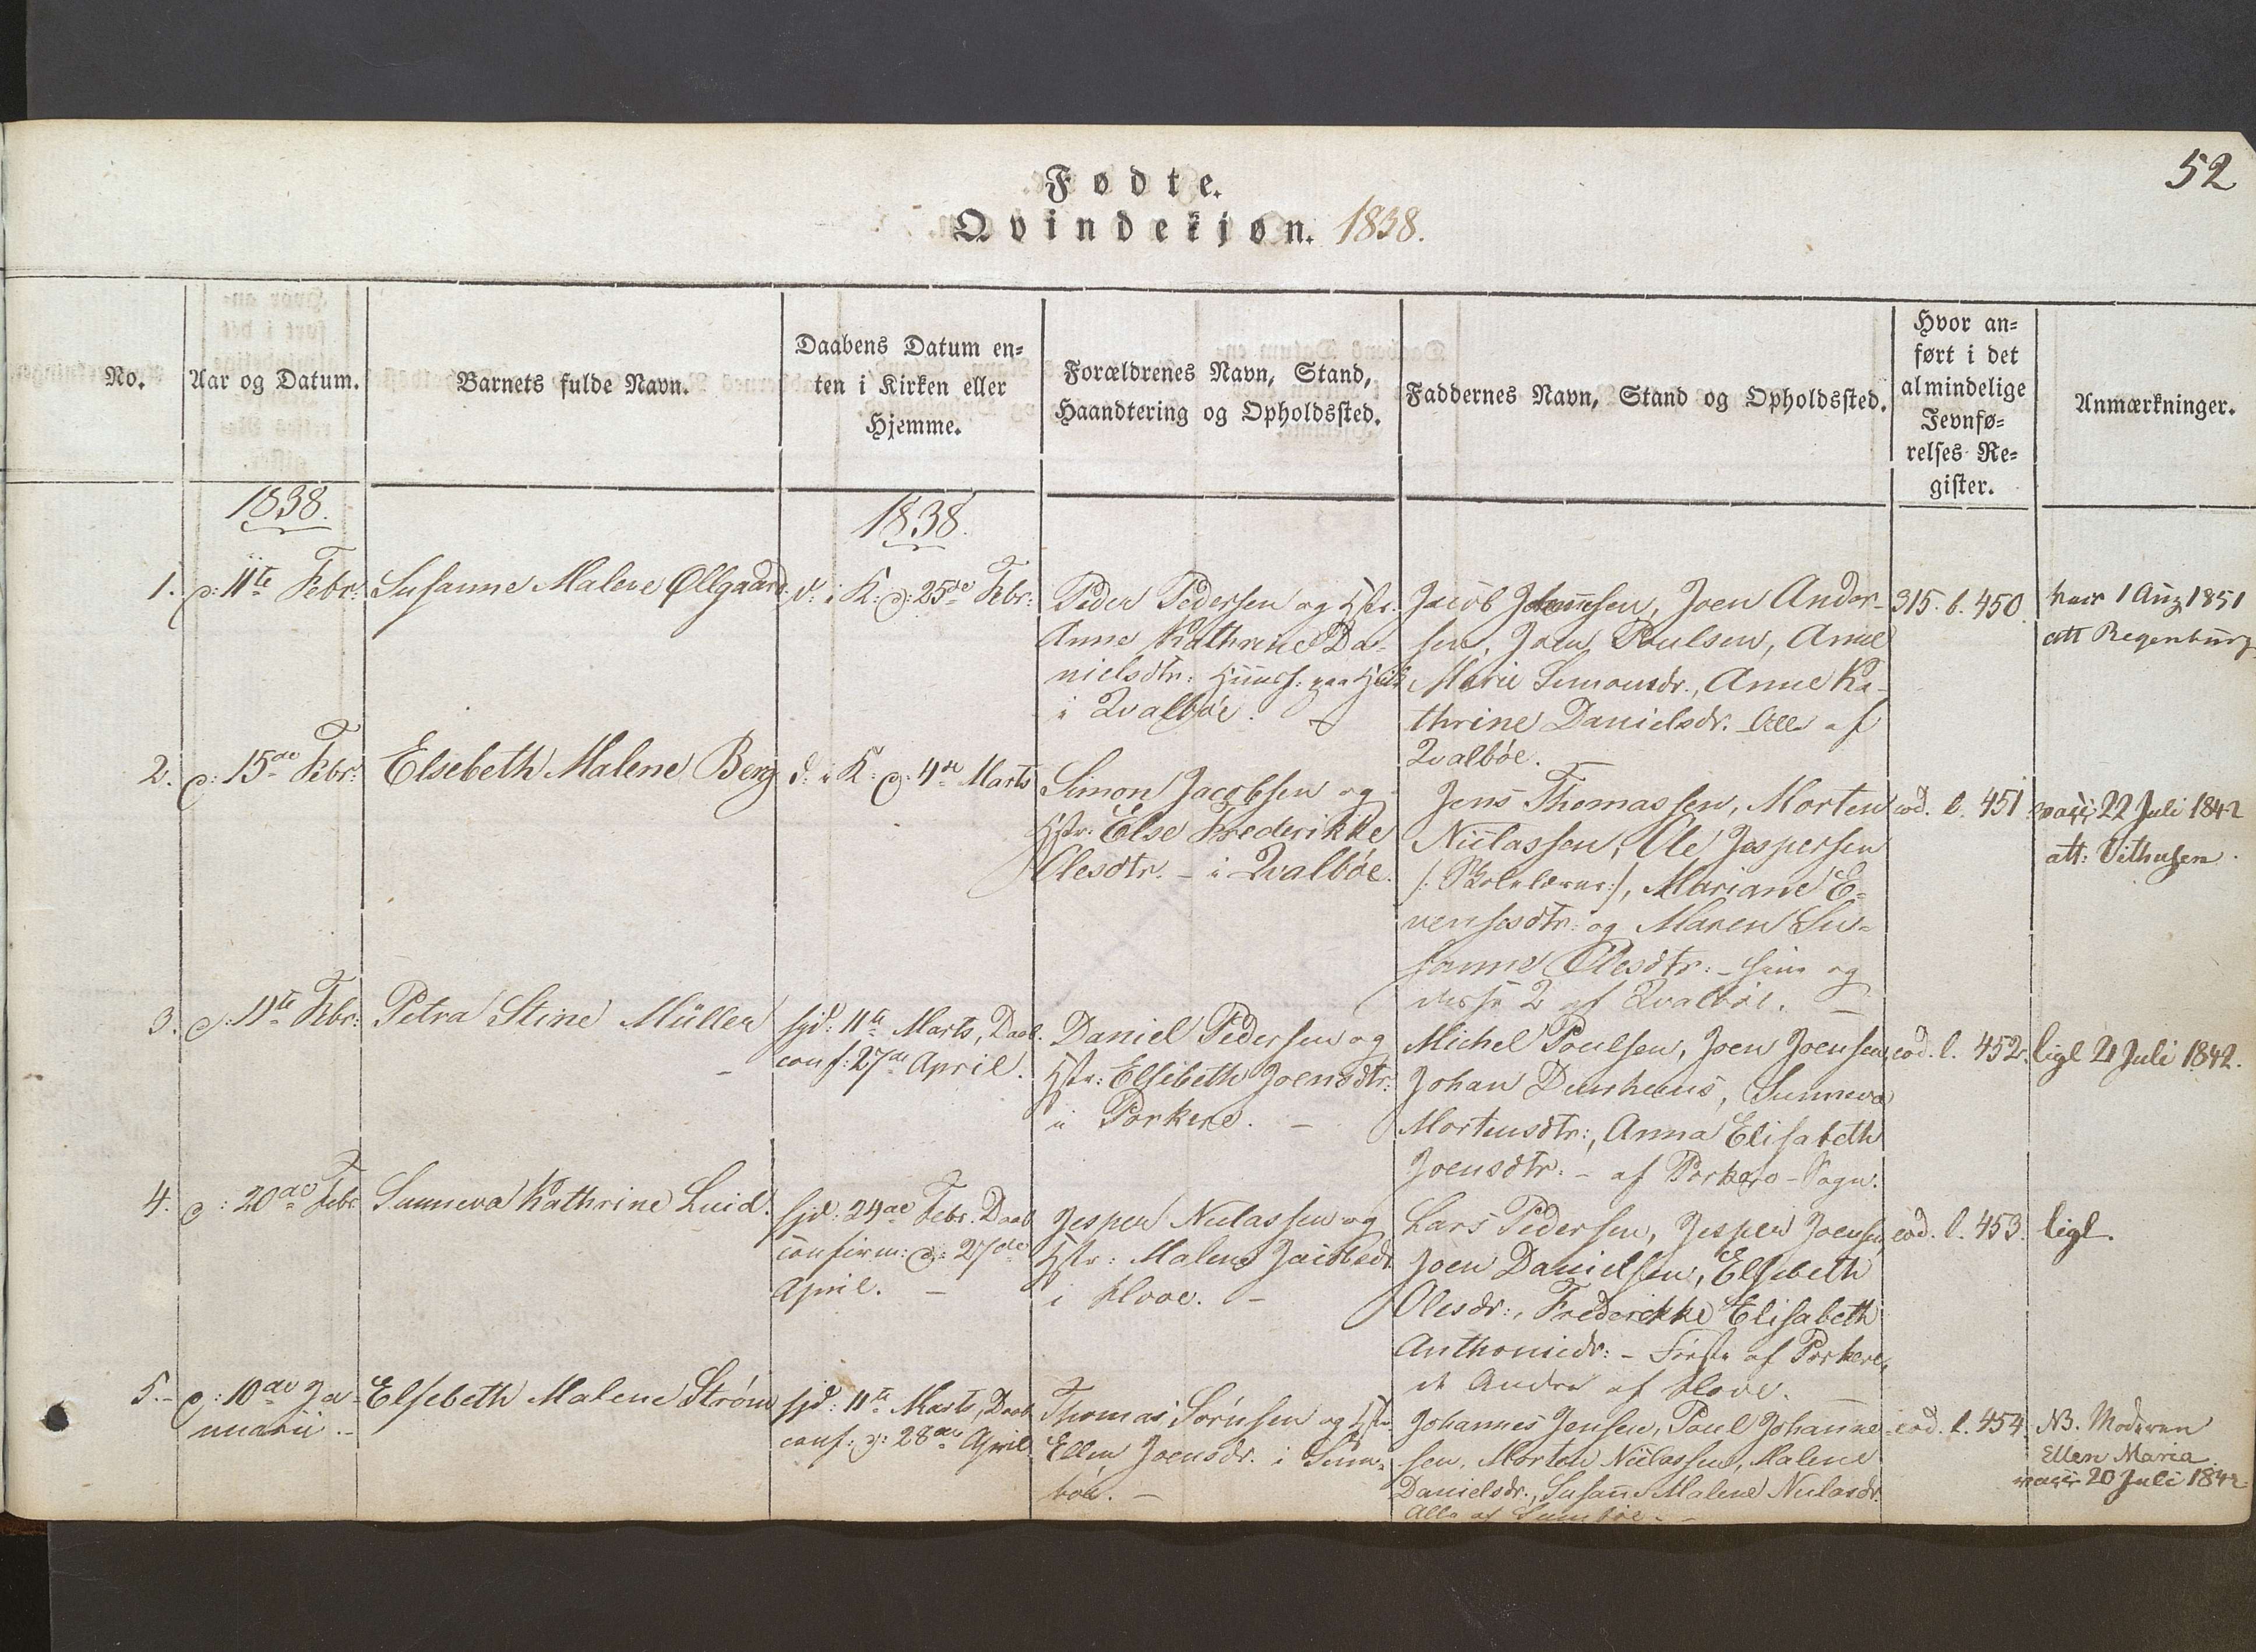 52
Fødte.
Qvindekjøn. 1838.
No.
Aar og Datum.
Barnets fulde Navn.
Daabens Datum en-
ten i Kirken eller
Hjemme.
Forældrenes Navn, Stand,
Haandtering og Opholdssted.
Faddernes Navn, Stand og Opholdssted.
Hvor an-
ført i det
almindelige
Jevnfø-
relses Re-
gister.
Anmærkninger.
1838.
1838.
1. d: 11te Febr:
Susanne Malene Øllgaard
d: i K: d: 25de Febr:
Peder Pedersen og Hstr:
Anne Kathrine Da-
nielsdtr: Huusf: paa
i Qvalbøe.
Jacob Johannesen, Joen Ander-
sen, Joen Poulsen, Anne
Marie Simonsdr., Anne Ka-
thrine Danielsdr. Alle af
Qvalbøe.
315. l. 450.
vacc 1 Aug 1851
att Regenburg
2. d: 15de Febr:
Elsebeth Malene Berg
d: i K: d: 4de Marts
Simon Jacobsen og
Hstr: Else Frederikke
Olesdtr. - i Qvalbøe.
Jens Thomassen, Morten
Niclassen, Ole Jespersen
/: Skolelærer:/, Mariane E-
vensesdtr: og Maren Su-
sanne Olesdtr: -
disse 2 af Qvalbøe.
eod. l. 451
vacc 22 Juli 1842
att:
3. d: 11te Febr:
Petra Stine Müller
hjd: 11te Marts, Daab.
conf: 27de April.
Daniel Pedersen og
Hstr: Elsebeth Joensdtr:
i Porkere. -
Michel Poulsen, Joen Joensen
Johan Dunhuus, Sunneva
Mortensdtr:, Anna Elisabeth
Joensdtr. - af Porkere-Sogn.
eod. l. 452.
ligl 21 Juli 1842.
4. d: 20de Febr
Sunneva Kathrine Luid.
hjd: 24de Febr. Daab
confirm: d: 27de
April. -
Jesper Niclassen og
Hstr: Malene Jacobsdr
i Hove. -
Lars Pedersen, Jesper Joensen
Joen Danielsen, Elsebeth
Olesdr:, Frederikke Elisabeth
Anthonidr: - Første af Porkere,
de Andre af Hove.
eod. l. 453.
ligl.
5. - d: 10de Ja-
nuarii. -
Elsebeth Malene Strøm
hjd: 11te Marts, Daab
conf: d: 28de April
Thomas Sørnsen og Hstr
Ellen Joensdr. i Sum-
bøe. -
Johannes Jensen, Poul Johanne-
sen, Morten Niclassen, Malene
Danielsdr., Susanne Malene Niclasdr.
Alle af Sumbøe. -
eod. l. 454.
NB. Moderen
Ellen Maria
vacc 20 Juli 1842